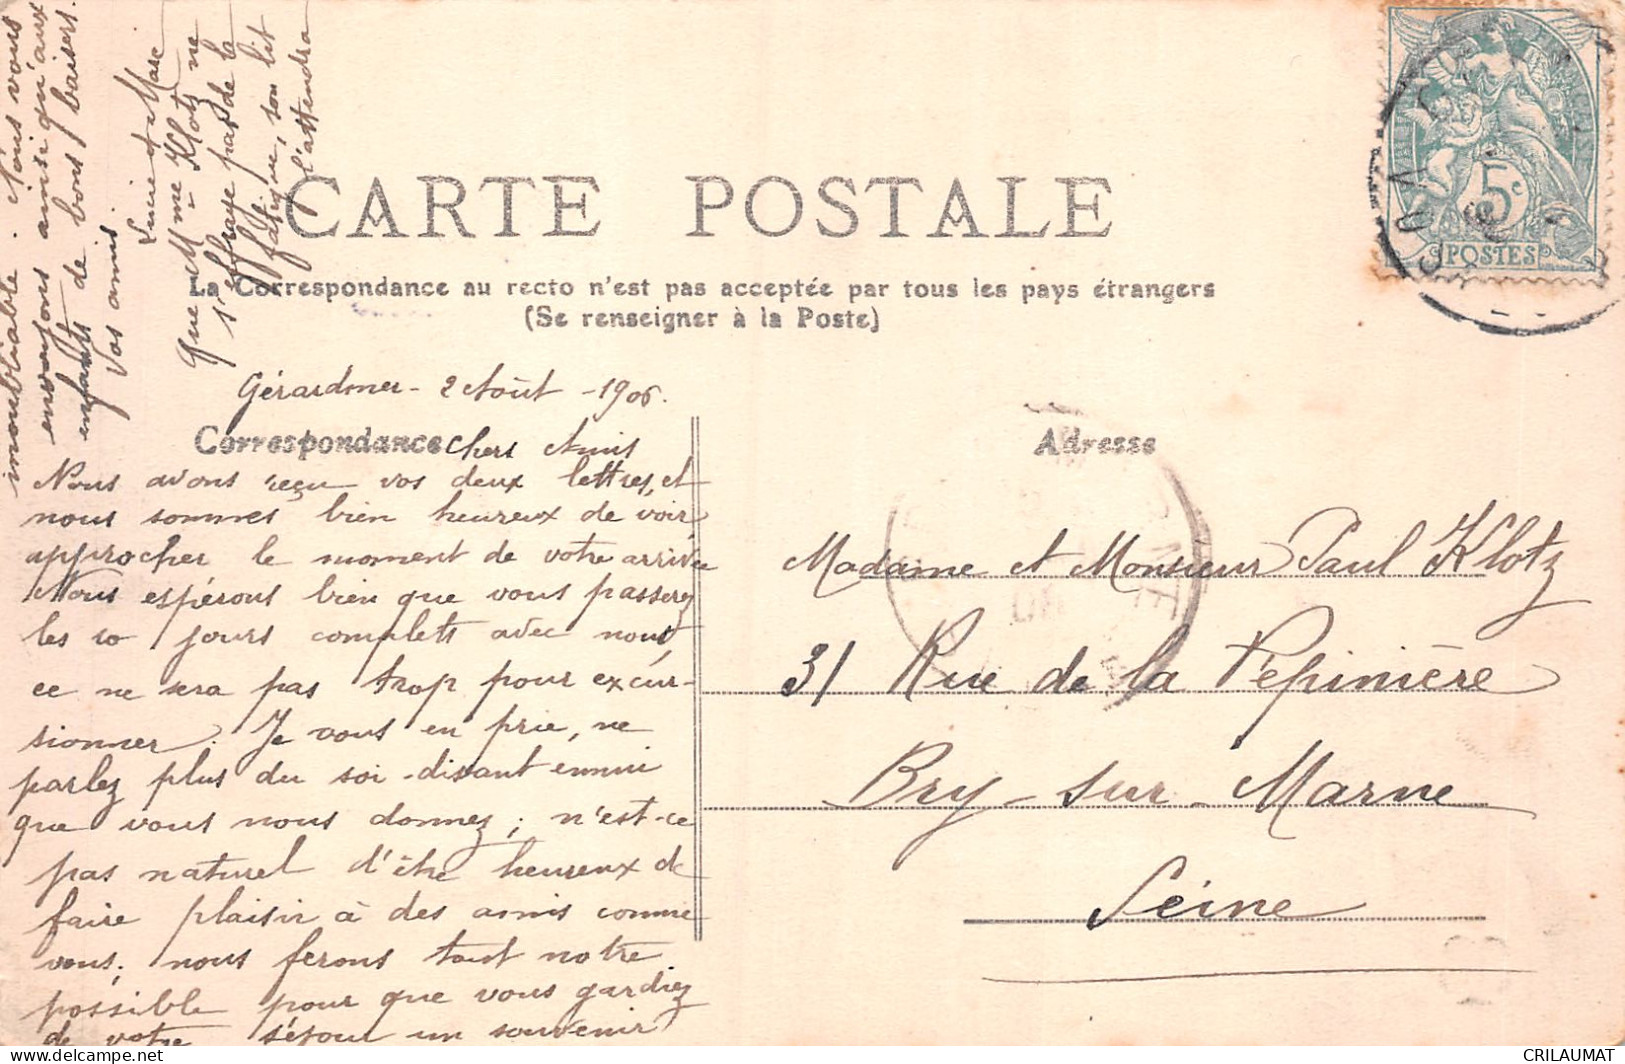 CARTE POSTALE
La Correspondance au recto n'est pas acceptée par tous les pays étrangers
(Se renseigner à la Poste)
5c
POSTES
Gérardmer - 2 Août - 1906.
Correspondance
Chers Amis
Nous avons reçu vos deux lettres, et
nous sommes bien heureux de voir
approcher le moment de votre arrivée
Nous espérons bien que vous passerez
les 10 jours complets avec nous,
ce ne sera pas trop pour excur-
sionner. Je vous en prie, ne
parlez plus du soi-disant ennui
que vous nous donnez; n'est-ce
pas naturel d'être heureux de
faire plaisir à des amis comme
vous; nous ferons tout notre
possible pour que vous gardiez
de votre séjour un souvenir
inoubliable. Nous vous
envoyons ainsi qu'aux
enfants de bons baisers.
Vos amis.
Lucie et Marc
Que Mme Klotz ne
s'effraye pas de la
fatigue, son lit
l'attendra
Adresse
Madame et Monsieur Paul Klotz
31 Rue de la Pépinière
Bry-sur-Marne
Seine
CRILAUMAT